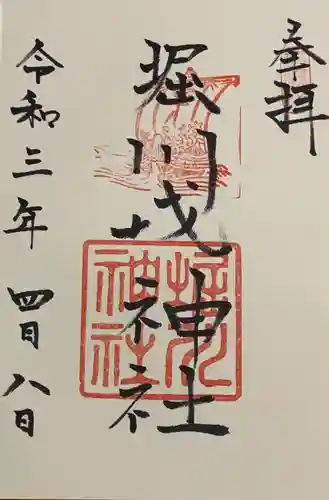 奉拝
堀川戎神社
堀川
神社
令和三年 四月八日